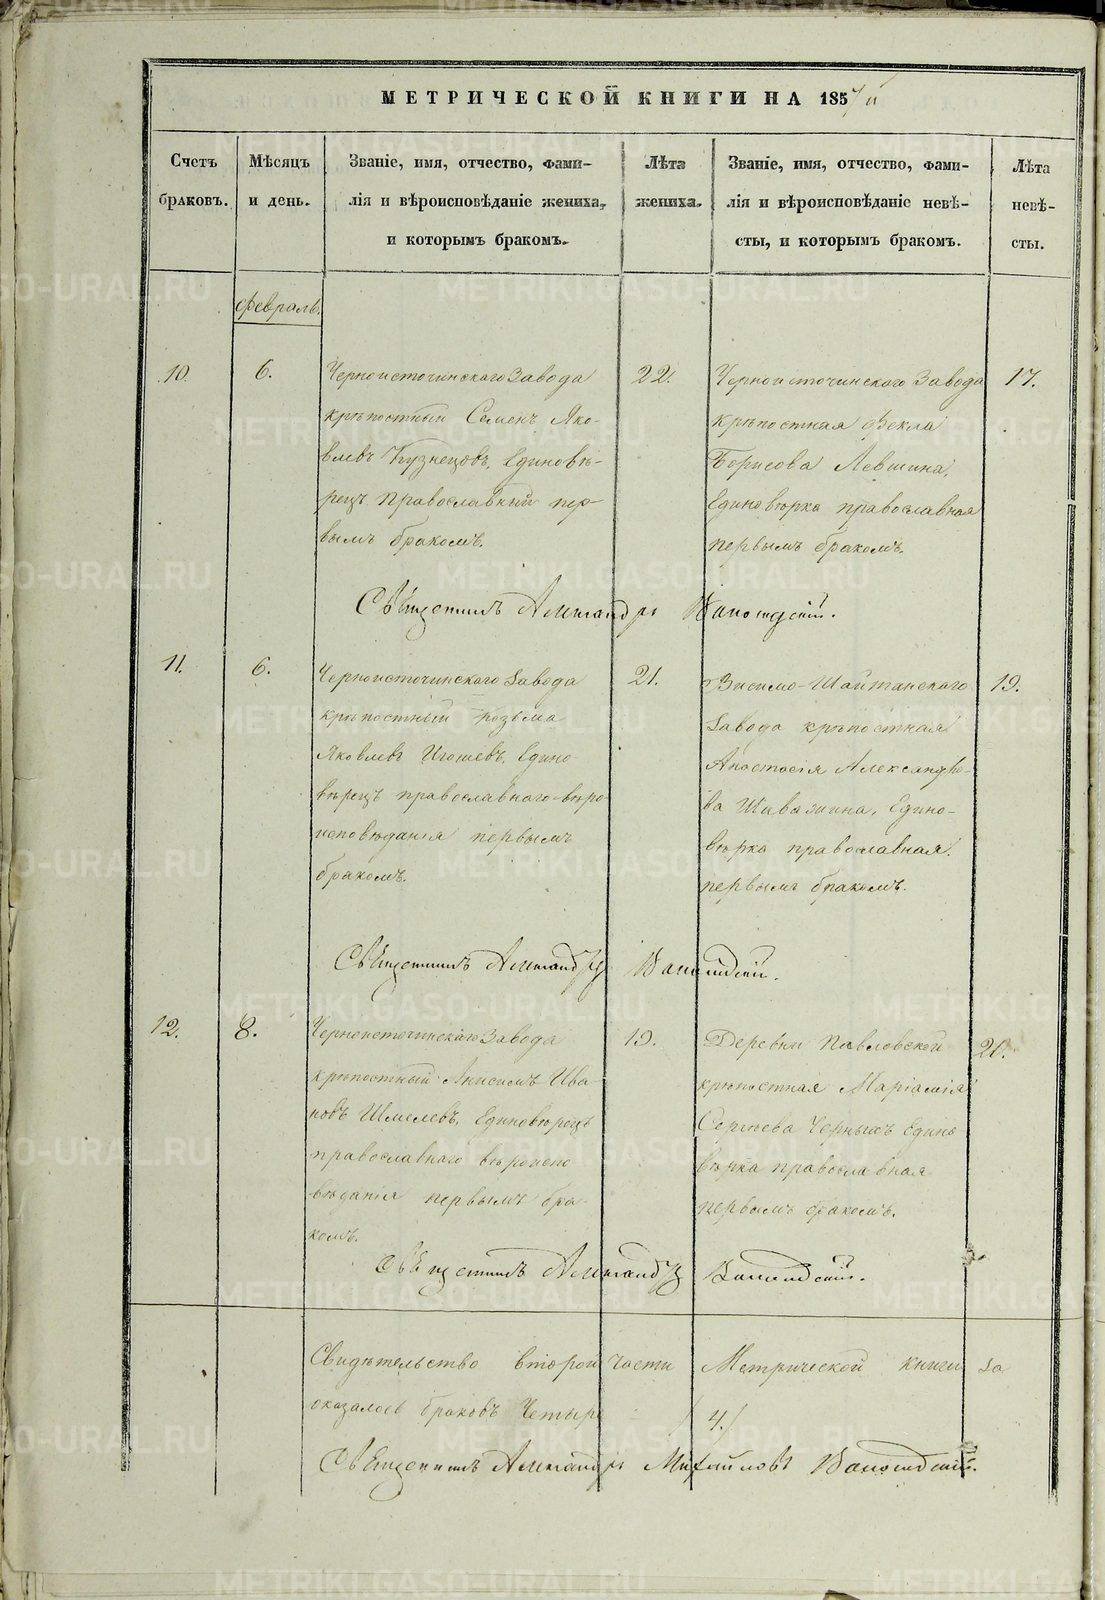 МЕТРИЧЕСКОЙ КНИГИ НА 185
Счетъ браковъ.
Мѣсяцъ и день.
Званіе, имя, отчество, фами-
лія и вѣроисповѣданіе жениха,
и которымъ бракомъ.
Лѣта жениха.
Званіе, имя, отчество, фами-
лія и вѣроисповѣданіе невѣ-
сты, и которымъ бракомъ.
Лѣта невѣ-
сты.
Февраль.
10.
6.
Черноисточинскаго Завода
крѣпостный Семенъ Яко-
влевъ Кузнецовъ, Единовѣ-
рецъ Православный пер-
вымъ бракомъ.
22.
Черноисточинскаго Завода
крѣпостная Фекла
Борисова Левшина,
Единовѣрка православная
первымъ бракомъ.
17.
Священникъ Александръ
11.
6.
Черноисточинскаго Завода
крѣпостный Козьма
Яковлевъ Игошевъ, Едино-
вѣрецъ православнаго вѣро
исповѣданія первымъ
бракомъ.
21.
Висимо-Шайтанскаго
Завода крѣпостная
Анастасія Александро-
ва Едино-
вѣрка православная.
первымъ бракомъ.
19.
Священникъ Александръ
12.
8.
Черноисточинскаго Завода
крѣпостный Анисимъ Ива-
новъ Шмелевъ, Единовѣрецъ
православнаго вѣроиспо
вѣданія первымъ бра-
комъ.
19.
Деревни Павловской
крѣпостная Маріамія
Сергѣева Черныхъ Едино
вѣрка православная
первымъ бракомъ.
Священникъ Александръ
Свидѣтельство второй части Метрической книги
оказалось браковъ Четыре /4./
Священникъ Александръ Михайловъ
METRIKI.GASO-URAL.RU